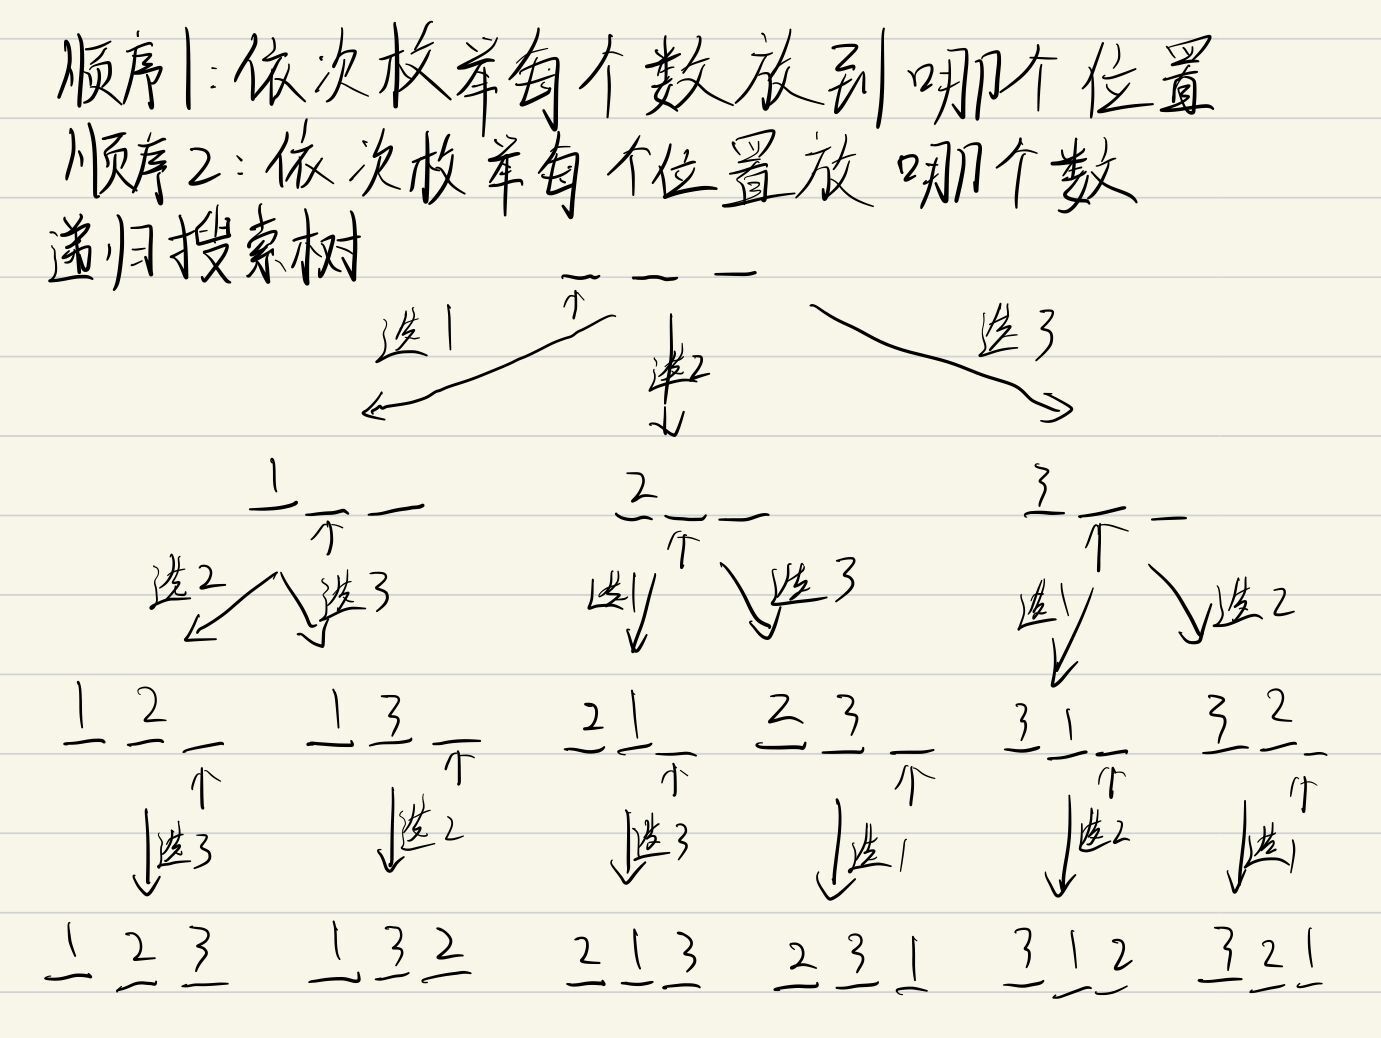 顺序1:依次枚举每个数放到哪个位置
顺序2:依次枚举每个位置放哪个数
递归搜索树
选1 选2 选3
1 2 3
选2 选3 选1 选3 选1 选2
1 2 1 3 2 1 2 3 3 1 3 2
选3 选2 选3 选1 选2 选1
1 2 3 1 3 2 2 1 3 2 3 1 3 1 2 3 2 1